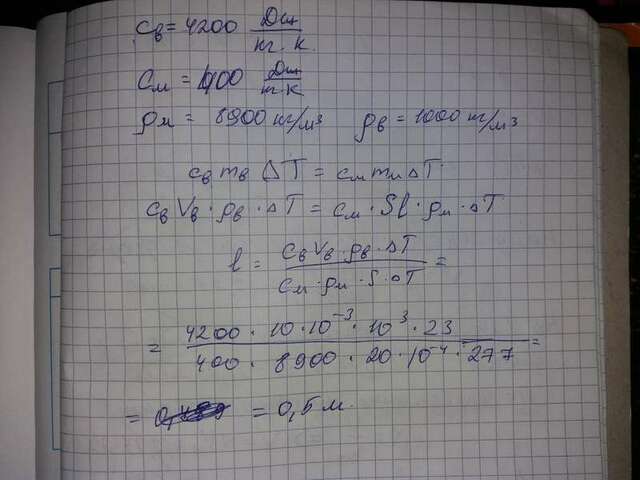 cв = 4200 Дж/кг·К
cм = 400 Дж/кг·К
ρм = 8900 кг/м³ ρв = 1000 кг/м³
cв mв ΔT = cм mм ΔT
cв Vв · ρв · ΔT = cм · Sl · ρм · ΔT
l = cв Vв · ρв · ΔT / cм · ρм · S · ΔT =
= 4200 · 10 · 10⁻³ · 10³ · 23 / 400 · 8900 · 20 · 10⁻⁴ · 277 =
= = 0,5 м